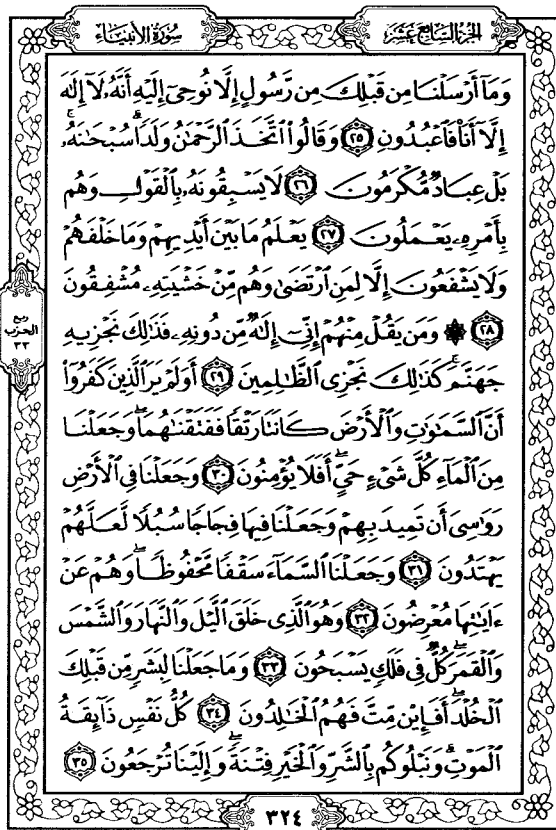 سُورَةُ الأَنبِيَاء
الجُزْءُ السَّابِعَ عَشَرَ
وَمَآ أَرْسَلْنَا مِن قَبْلِكَ مِن رَّسُولٍ إِلَّا نُوحِىٓ إِلَيْهِ أَنَّهُۥ لَآ إِلَٰهَ
إِلَّآ أَنَا۠ فَٱعْبُدُونِ ﴿٢٥﴾ وَقَالُوا۟ ٱتَّخَذَ ٱلرَّحْمَٰنُ وَلَدًا ۗ سُبْحَٰنَهُۥ ۚ
بَلْ عِبَادٌ مُّكْرَمُونَ ﴿٢٦﴾ لَا يَسْبِقُونَهُۥ بِٱلْقَوْلِ وَهُم
بِأَمْرِهِۦ يَعْمَلُونَ ﴿٢٧﴾ يَعْلَمُ مَا بَيْنَ أَيْدِيهِمْ وَمَا خَلْفَهُمْ
وَلَا يَشْفَعُونَ إِلَّا لِمَنِ ٱرْتَضَىٰ وَهُم مِّنْ خَشْيَتِهِۦ مُشْفِقُونَ
﴿٢٨﴾ ۞ وَمَن يَقُلْ مِنْهُمْ إِنِّىٓ إِلَٰهٌ مِّن دُونِهِۦ فَذَٰلِكَ نَجْزِيهِ
جَهَنَّمَ ۚ كَذَٰلِكَ نَجْزِى ٱلظَّٰلِمِينَ ﴿٢٩﴾ أَوَلَمْ يَرَ ٱلَّذِينَ كَفَرُوٓا۟
أَنَّ ٱلسَّمَٰوَٰتِ وَٱلْأَرْضَ كَانَتَا رَتْقًا فَفَتَقْنَٰهُمَا ۖ وَجَعَلْنَا
مِنَ ٱلْمَآءِ كُلَّ شَىْءٍ حَىٍّ ۖ أَفَلَا يُؤْمِنُونَ ﴿٣٠﴾ وَجَعَلْنَا فِى ٱلْأَرْضِ
رَوَٰسِىَ أَن تَمِيدَ بِهِمْ وَجَعَلْنَا فِيهَا فِجَاجًا سُبُلًا لَّعَلَّهُمْ
يَهْتَدُونَ ﴿٣١﴾ وَجَعَلْنَا ٱلسَّمَآءَ سَقْفًا مَّحْفُوظًا ۖ وَهُمْ عَنْ
ءَايَٰتِهَا مُعْرِضُونَ ﴿٣٢﴾ وَهُوَ ٱلَّذِى خَلَقَ ٱلَّيْلَ وَٱلنَّهَارَ وَٱلشَّمْسَ
وَٱلْقَمَرَ ۖ كُلٌّ فِى فَلَكٍ يَسْبَحُونَ ﴿٣٣﴾ وَمَا جَعَلْنَا لِبَشَرٍ مِّن قَبْلِكَ
ٱلْخُلْدَ ۖ أَفَإِي۟ن مِّتَّ فَهُمُ ٱلْخَٰلِدُونَ ﴿٣٤﴾ كُلُّ نَفْسٍ ذَآئِقَةُ
ٱلْمَوْتِ ۗ وَنَبْلُوكُم بِٱلشَّرِّ وَٱلْخَيْرِ فِتْنَةً ۖ وَإِلَيْنَا تُرْجَعُونَ ﴿٣٥﴾
ربع
الحزب
٣٣
٣٢٤